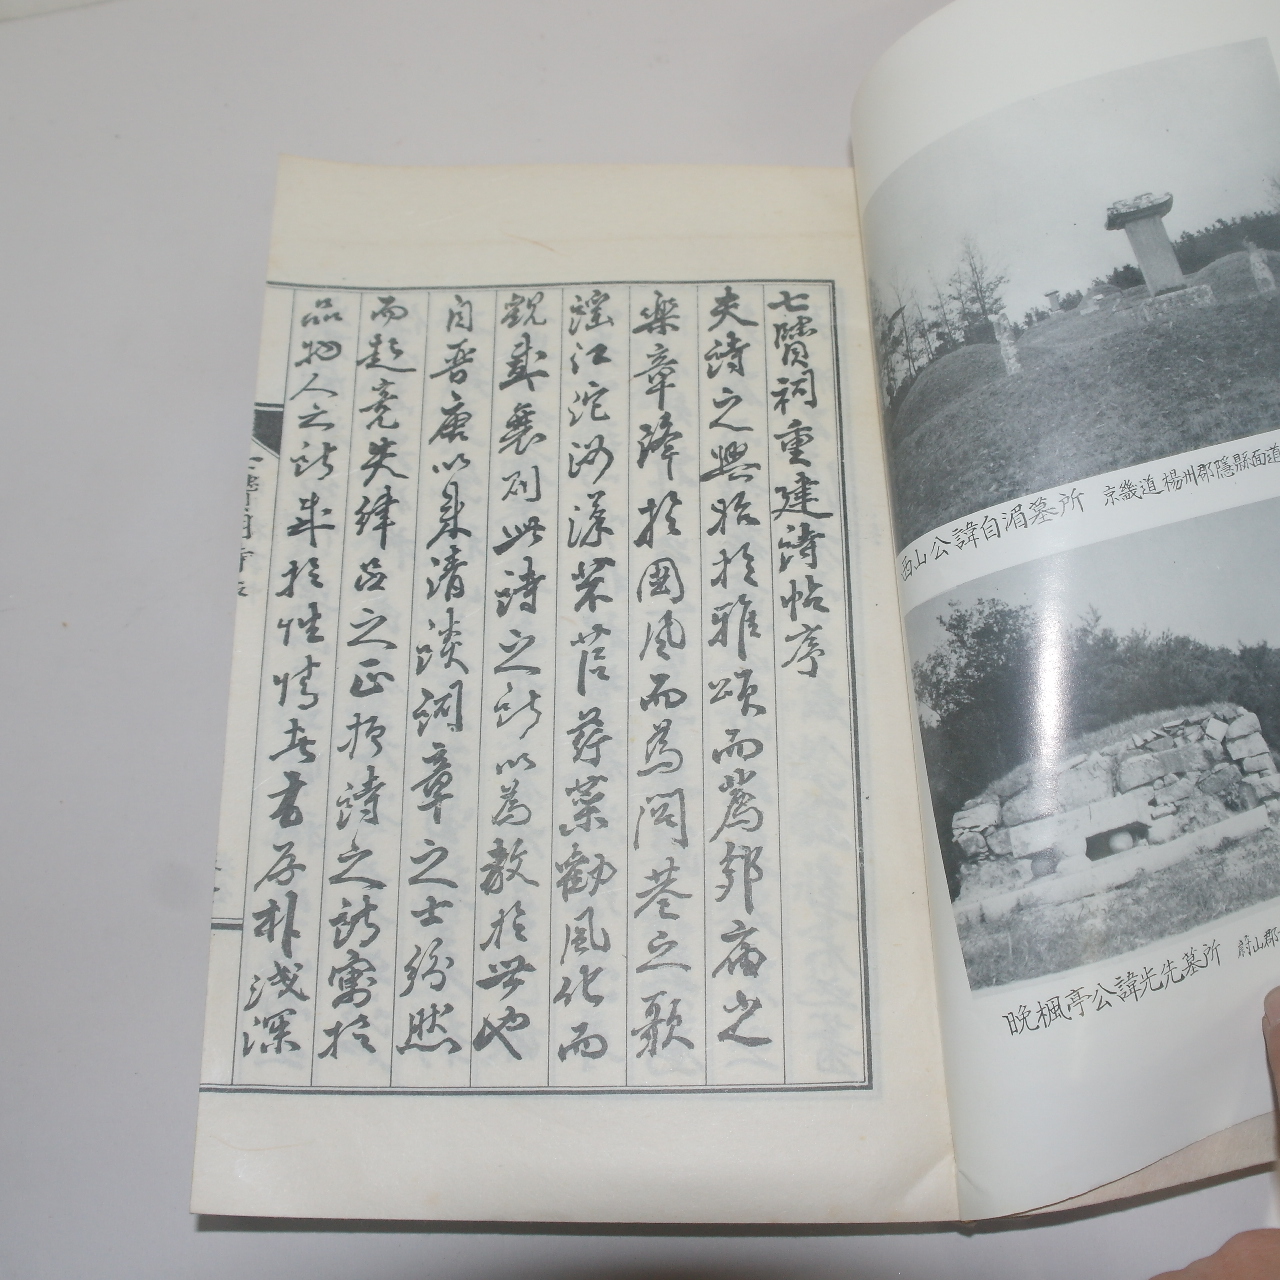 西山公諱自湄墓所 京畿道楊州郡隱縣面道
晚楓亭公諱光先墓所 蔚山郡
七賢祠重建詩帖序
夫詩之興始於雅頌而薦郊廟之
樂章降於國風而爲閭巷之歌
謠江沱汝漢芣苢荇菜勸風化而
觀盛衰列此詩之所以爲教於世也
自晉唐以來清談詞章之士紛然
而起竟失律呂之正格詩之所寓於
品物人之所感於性情者有厚朴淺深